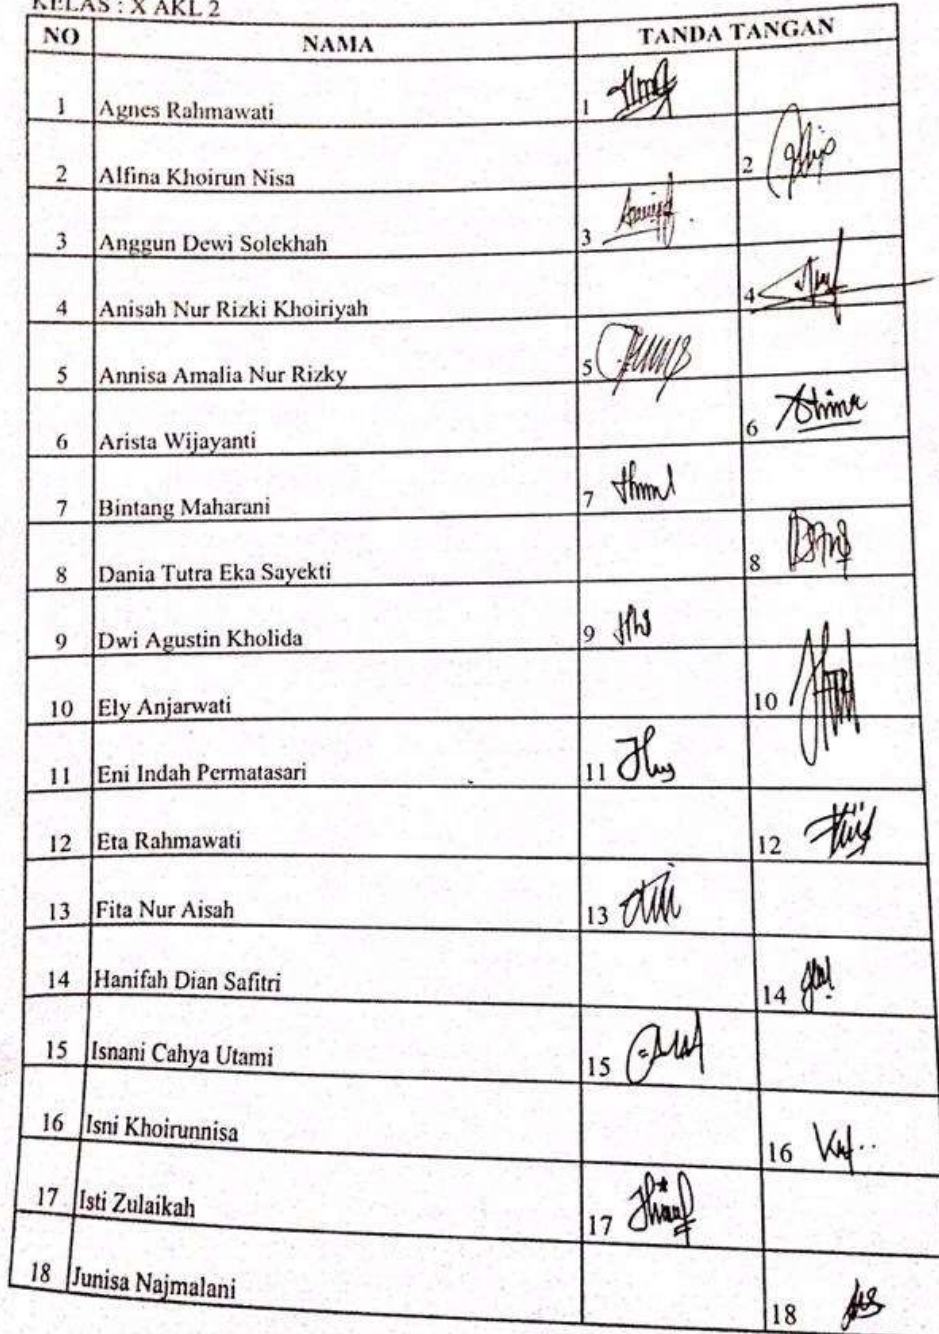 KELAS : X AKL 2
NO NAMA TANDA TANGAN
1 Agnes Rahmawati 1
2 Alfina Khoirun Nisa 2
3 Anggun Dewi Solekhah 3
4 Anisah Nur Rizki Khoiriyah 4
5 Annisa Amalia Nur Rizky 5
6 Arista Wijayanti 6
7 Bintang Maharani 7
8 Dania Tutra Eka Sayekti 8
9 Dwi Agustin Kholida 9
10 Ely Anjarwati 10
11 Eni Indah Permatasari 11
12 Eta Rahmawati 12
13 Fita Nur Aisah 13
14 Hanifah Dian Safitri 14
15 Isnani Cahya Utami 15
16 Isni Khoirunnisa 16
17 Isti Zulaikah 17
18 Junisa Najmalani 18